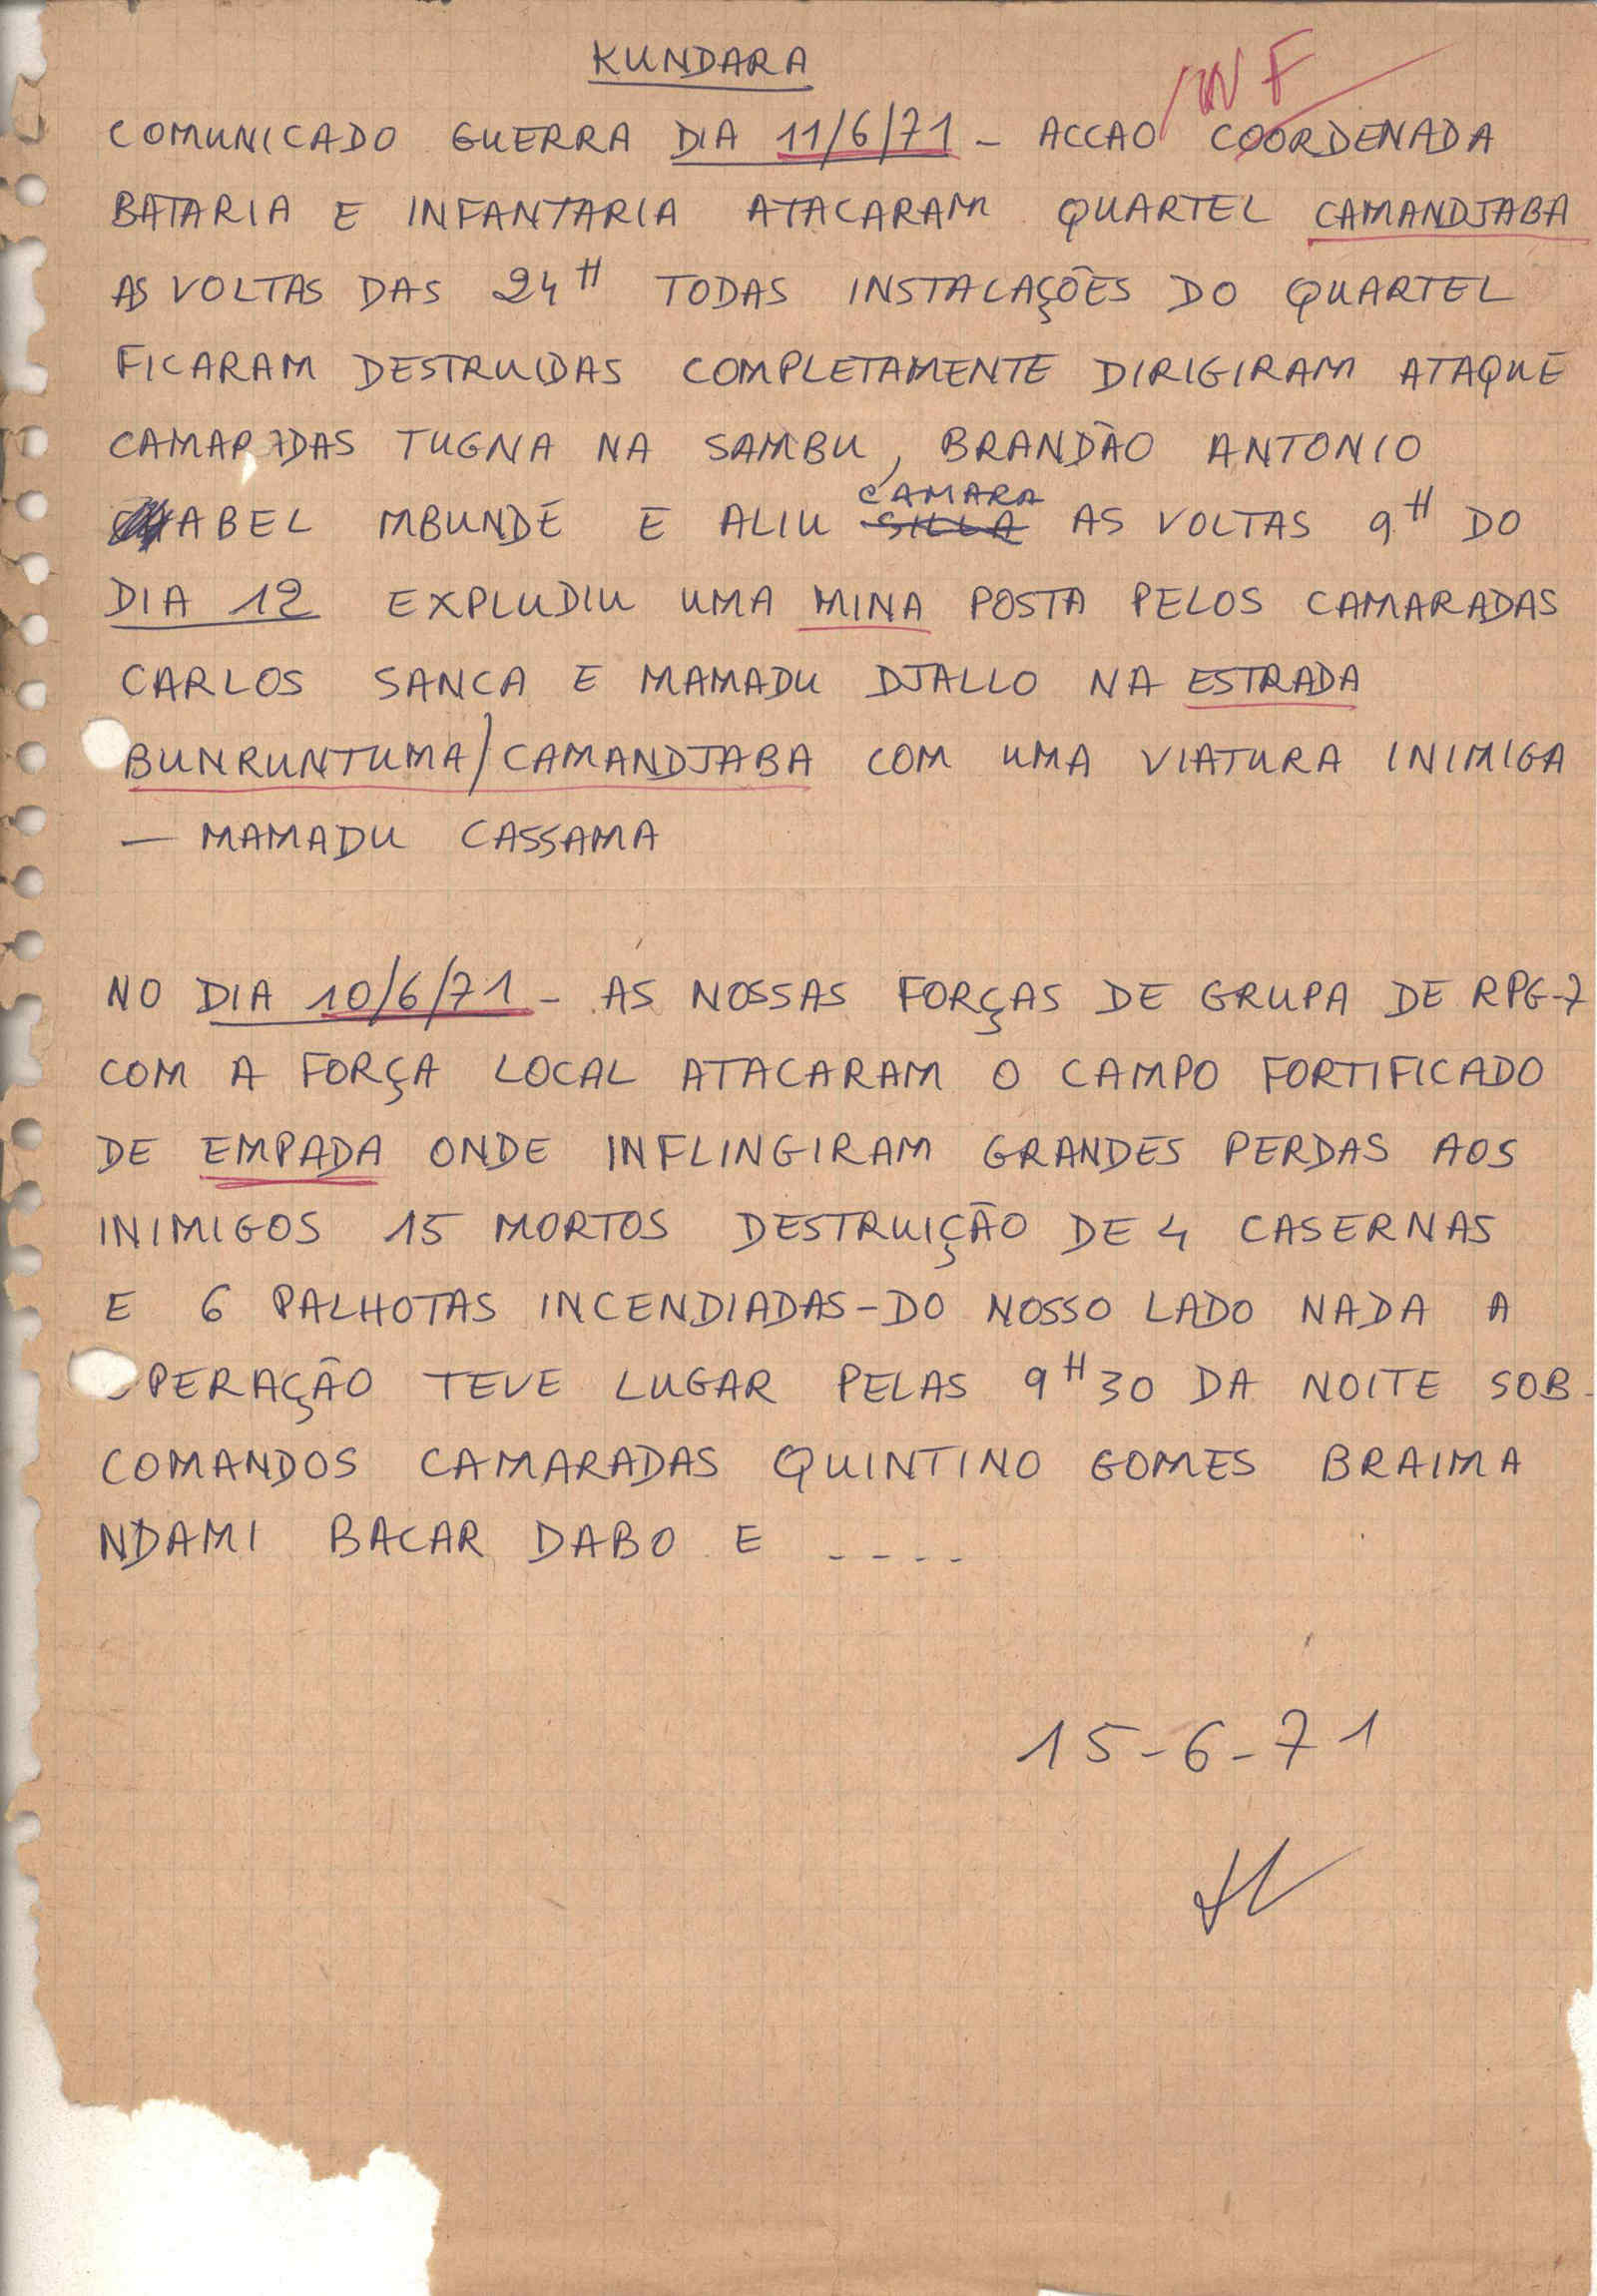 KUNDARA
INF
COMUNICADO GUERRA DIA 11/6/71 - ACCAO COORDENADA
BATARIA E INFANTARIA ATACARAM QUARTEL CAMANDJABA
AS VOLTAS DAS 24H TODAS INSTALAÇÕES DO QUARTEL
FICARAM DESTRUIDAS COMPLETAMENTE DIRIGIRAM ATAQUE
CAMARADAS TUGNA NA SAMBU, BRANDÃO ANTONIO
CAMARA
ABEL MBUNDE E ALIU SILLA AS VOLTAS 9H DO
DIA 12 EXPLUDIU UMA MINA POSTA PELOS CAMARADAS
CARLOS SANCA E MAMADU DJALLO NA ESTRADA
BUNRUNTUMA/CAMANDJABA COM UMA VIATURA INIMIGA
— MAMADU CASSAMA
NO DIA 10/6/71 - AS NOSSAS FORÇAS DE GRUPA DE RPG-7
COM A FORÇA LOCAL ATACARAM O CAMPO FORTIFICADO
DE EMPADA ONDE INFLINGIRAM GRANDES PERDAS AOS
INIMIGOS 15 MORTOS DESTRUIÇÃO DE 4 CASERNAS
E 6 PALHOTAS INCENDIADAS-DO NOSSO LADO NADA A
OPERAÇÃO TEVE LUGAR PELAS 9H30 DA NOITE SOB-
COMANDOS CAMARADAS QUINTINO GOMES BRAIMA
NDAMI BACAR DABO E ----
15-6-71